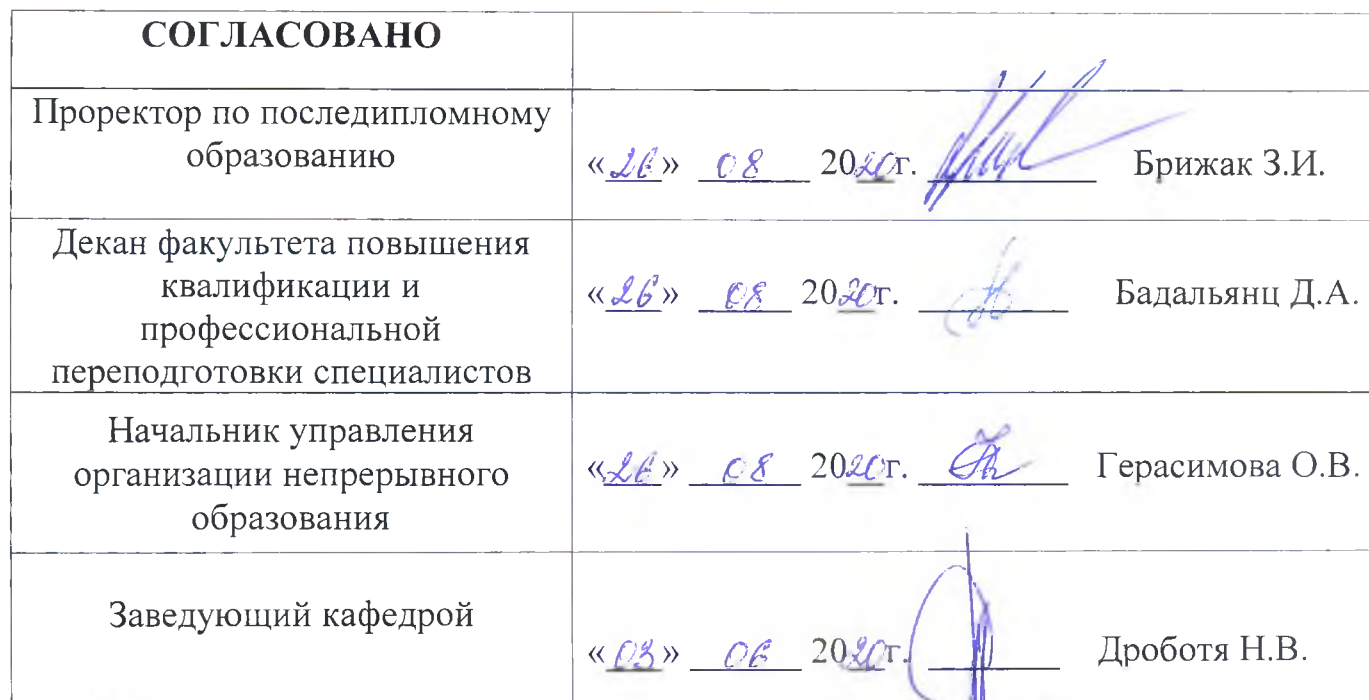 СОГЛАСОВАНО
Проректор по последипломному
образованию
«26» 08 2020г. Брижак З.И.
Декан факультета повышения
квалификации и
профессиональной
переподготовки специалистов
«26» 08 2020г. Бадальянц Д.А.
Начальник управления
организации непрерывного
образования
«26» 08 2020г. Герасимова О.В.
Заведующий кафедрой
«03» 06 2020г. Дроботя Н.В.